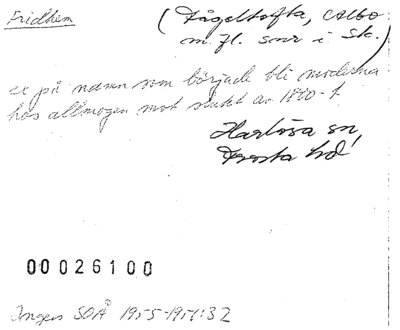 Fridhem
(Fågeltofta, Albo
m. fl. snr i Sk.)
ex på namn som började bli moderna
hos allmogen mot slutet av 1800-t.
Harlösa sn,
Frosta hd
00026100
Ingers SOÅ 1955-1957:32